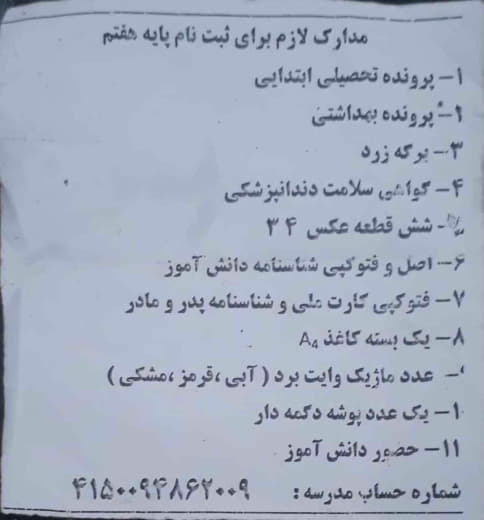 مدارک لازم برای ثبت نام پایه هفتم
۱- پرونده تحصیلی ابتدایی
۲- پرونده بهداشتی
۳- برگه زرد
۴- گواهی سلامت دندانپزشکی
- شش قطعه عکس ۴ ۳
۶- اصل و فتوکپی شناسنامه دانش آموز
۷- فتوکپی کارت ملی و شناسنامه پدر و مادر
۸- یک بسته کاغذ A4
- عدد ماژیک وایت برد ( آبی ،قرمز ،مشکی )
۱۰- یک عدد پوشه دکمه دار
۱۱- حضور دانش آموز
شماره حساب مدرسه : ۴۱۵۰۰۹۴۸۶۲۰۰۹